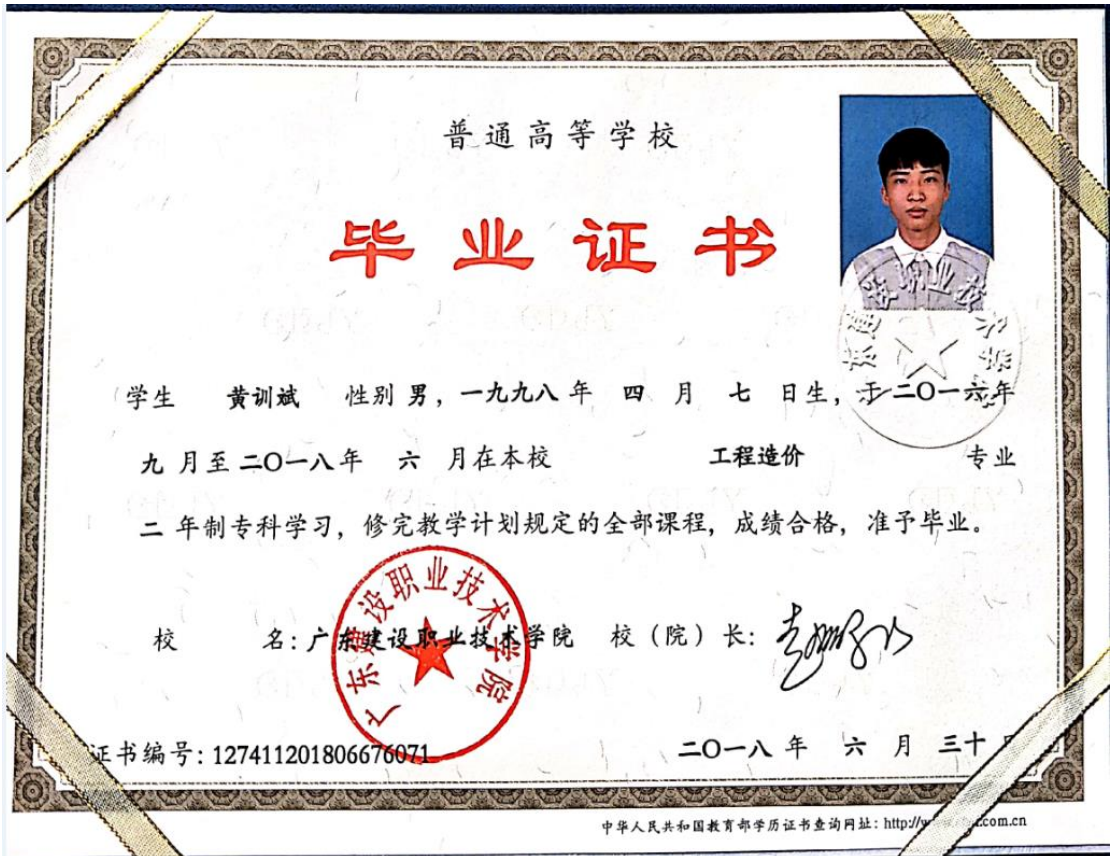 普通高等学校
毕业证书
学生 黄训斌 性别 男，一九九八 年 四 月 七 日生，于二〇一六年
九 月至 二〇一八 年 六 月在本校 工程造价 专业
二 年制专科学习，修完教学计划规定的全部课程，成绩合格，准予毕业。
校 名：广东建设职业技术学院 校（院）长：
广东建设职业技术学院
证书编号：127411201806676071
二〇一八 年 六 月 三十
中华人民共和国教育部学历证书查询网址：http://
.com.cn